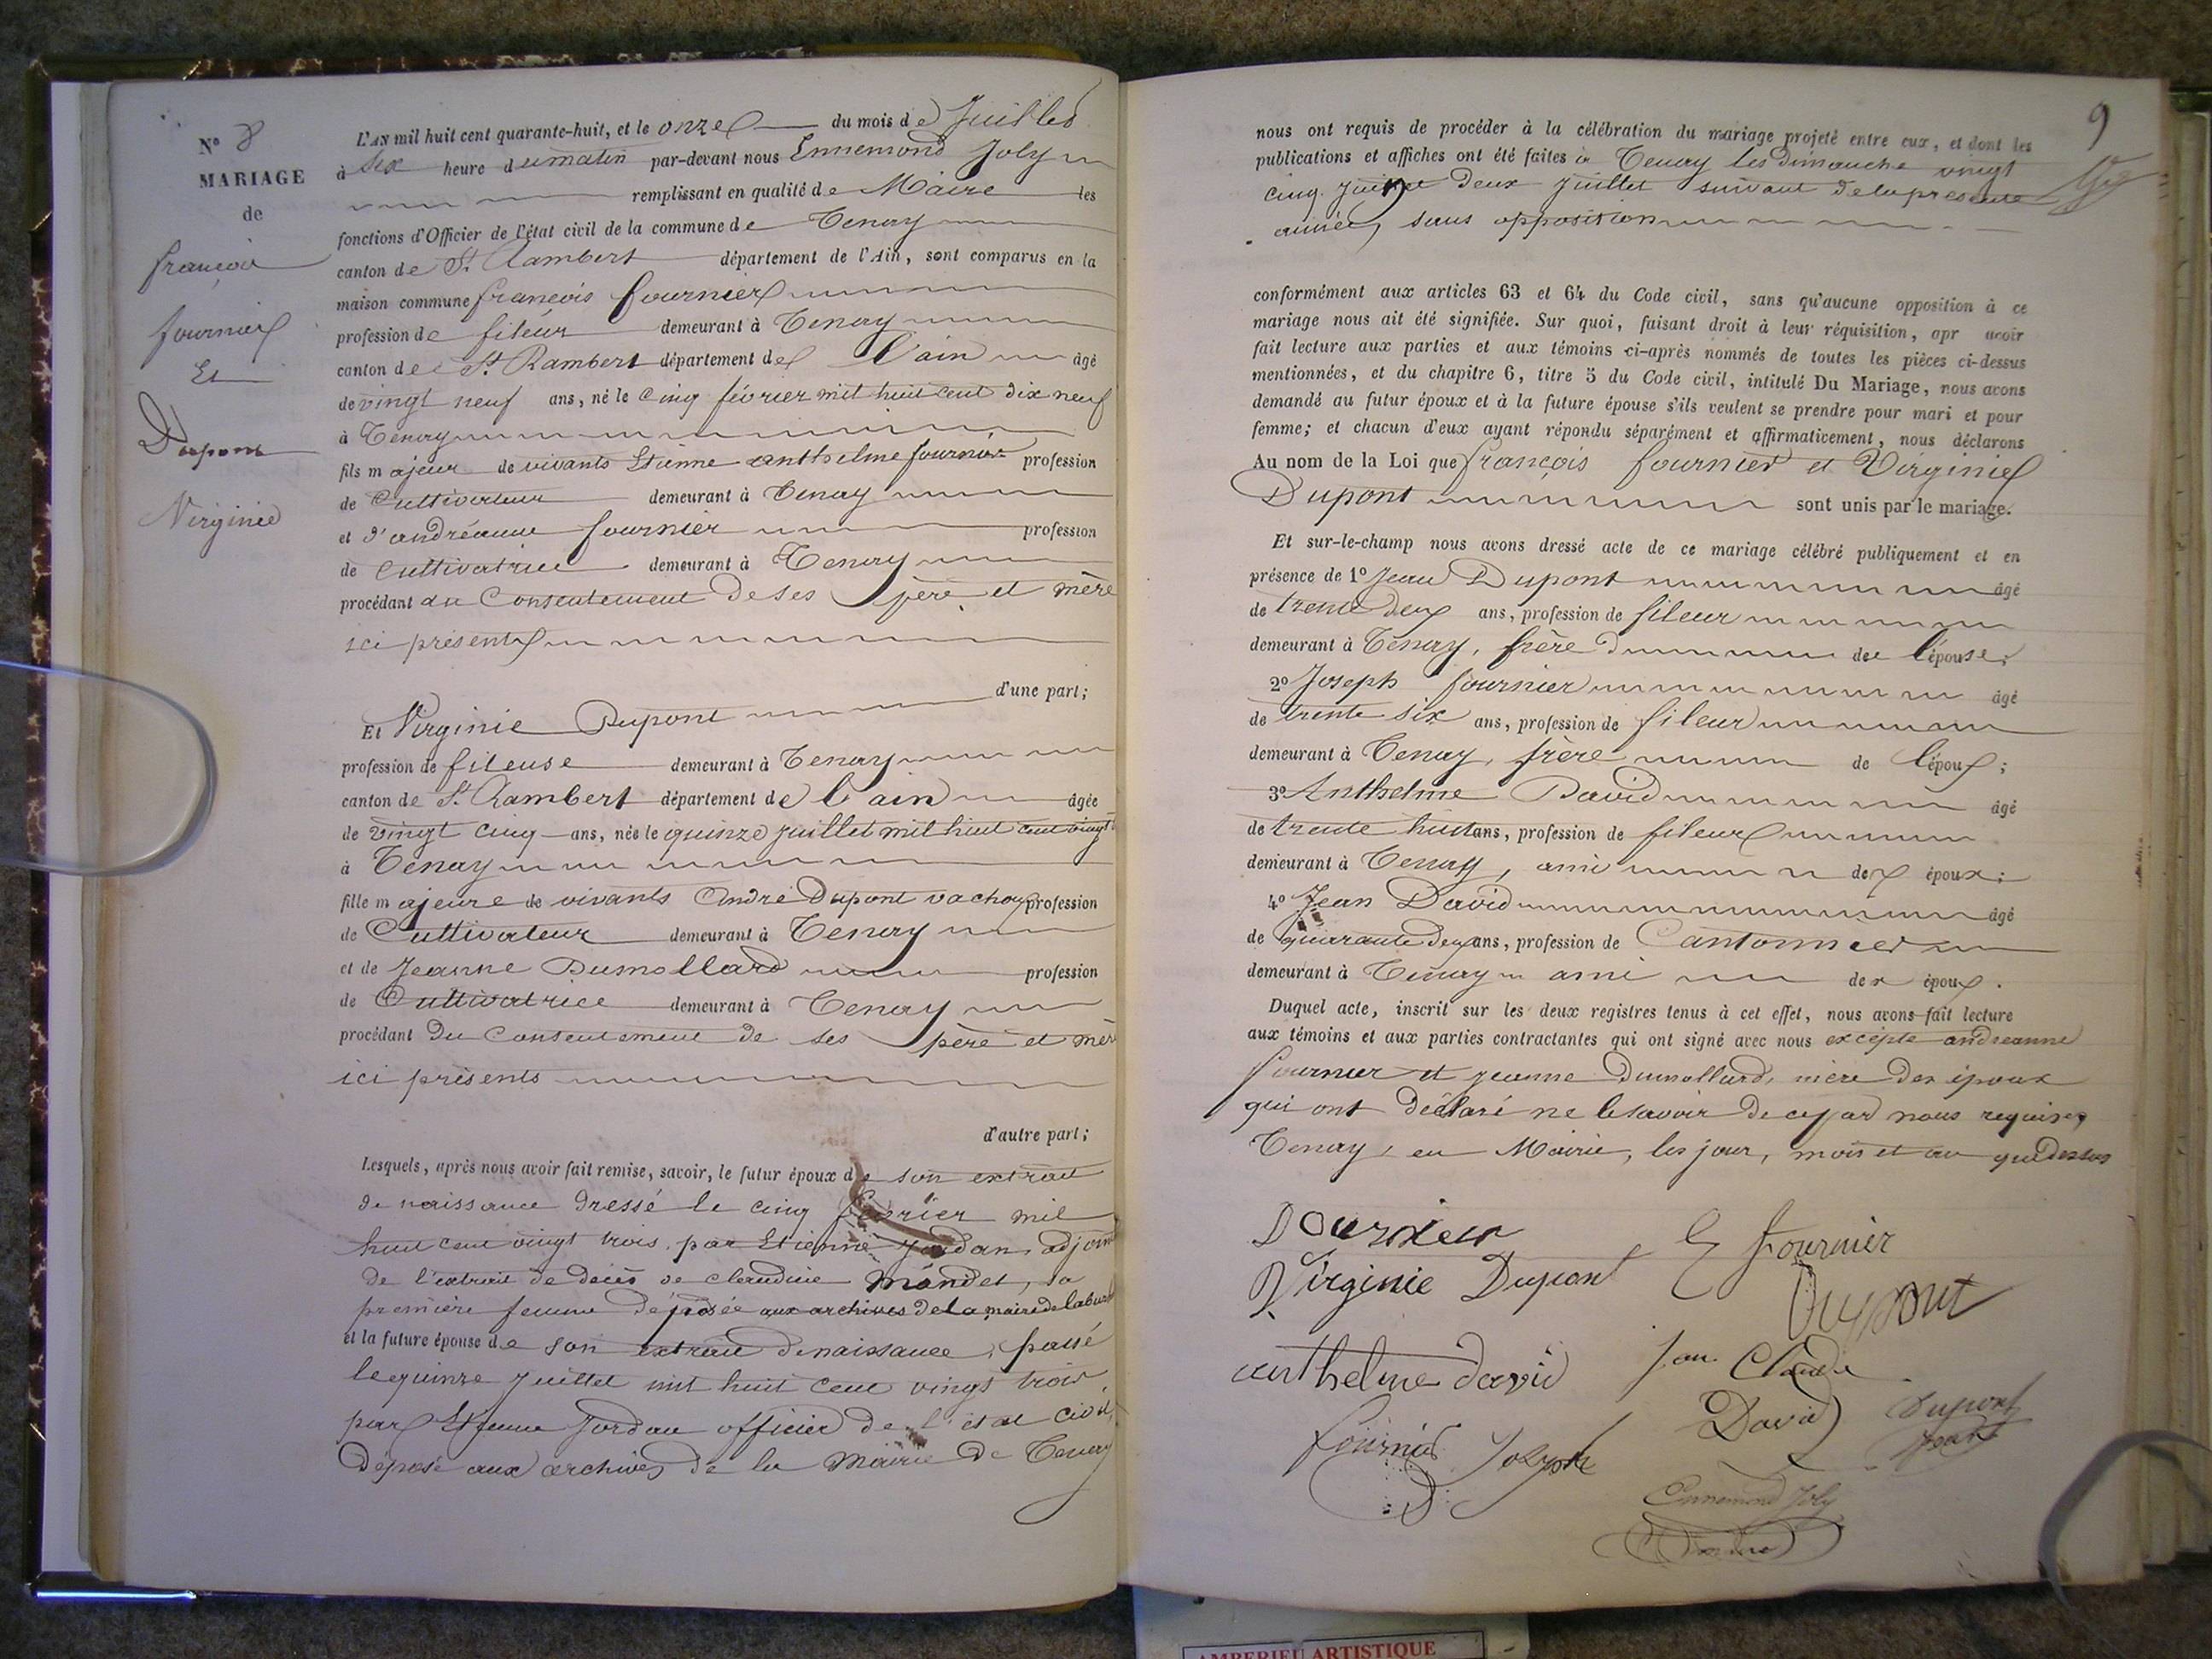 N° 8
MARIAGE
de
françois
fournier
Et
Dupont
Virginie
L'AN mil huit cent quarante-huit, et le onze du mois de Juillet
à six heure du matin par-devant nous Ennemond Joly
remplissant en qualité de Maire les
fonctions d'Officier de l'état civil de la commune de Tenay
canton de St Rambert département de l'Ain, sont comparus en la
maison commune françois fournier
profession de fileur demeurant à Tenay
canton de St Rambert département de l'ain âgé
de vingt neuf ans, né le cinq février mil huit cent dix neuf
à Tenay
fils majeur de vivants Etienne anthelme fournier profession
de Cultivateur demeurant à Tenay
et d'andréanne fournier profession
de Cultivatrice demeurant à Tenay
procédant du Consentement de ses père et mère
ici présents
d'une part;
Et Virginie Dupont
profession de fileuse demeurant à Tenay
canton de St Rambert département de l'ain âgée
de vingt cinq ans, née le quinze juillet mil huit cent vingt
à Tenay
fille majeure de vivants André Dupont vachou profession
de Cultivateur demeurant à Tenay
et de Jeanne Dumollard profession
de Cultivatrice demeurant à Tenay
procédant du Consentement de ses père et mère
ici présents
d'autre part;
Lesquels, après nous avoir fait remise, savoir, le futur époux de son extrait
de naissance dressé le cinq février mil
huit cent vingt trois, par Etienne Jordan, adjoint
de l'extrait de décès de claudine mandet, sa
première femme déposée aux archives de la mairie de
et la future épouse de son extrait de naissance, passé
le quinze juillet mil huit cent vingt trois,
par Etienne Jordan officier de l'état civil,
déposé aux archives de la Mairie de Tenay
9
nous ont requis de procéder à la célébration du mariage projeté entre eux, et dont les
publications et affiches ont été faites à Tenay les dimanche vingt
cinq juin et deux juillet suivant de la présente
année, sans opposition
conformément aux articles 63 et 64 du Code civil, sans qu'aucune opposition à ce
mariage nous ait été signifiée. Sur quoi, faisant droit à leur réquisition, apr avoir
fait lecture aux parties et aux témoins ci-après nommés de toutes les pièces ci-dessus
mentionnées, et du chapitre 6, titre 5 du Code civil, intitulé Du Mariage, nous avons
demandé au futur époux et à la future épouse s'ils veulent se prendre pour mari et pour
femme; et chacun d'eux ayant répondu séparément et affirmativement, nous déclarons
Au nom de la Loi que françois fournier et Virginie
Dupont sont unis par le mariage.
Et sur-le-champ nous avons dressé acte de ce mariage célébré publiquement et en
présence de 1° Jean Dupont âgé
de trente deux ans, profession de fileur
demeurant à Tenay, frère de l'épouse;
2° Joseph fournier âgé
de trente six ans, profession de fileur
demeurant à Tenay, frère de l'époux;
3° Anthelme David âgé
de trente huit ans, profession de fileur
demeurant à Tenay, ami des époux;
4° Jean David âgé
de quarante deux ans, profession de Cantonnier
demeurant à Tenay ami des époux.
Duquel acte, inscrit sur les deux registres tenus à cet effet, nous avons fait lecture
aux témoins et aux parties contractantes qui ont signé avec nous excepté andréanne
fournier et jeanne Dumollard, mère des époux
qui ont déclaré ne le savoir de ce par nous requises
Tenay, en Mairie, les jour, mois et an que dessus
E fournier
Virginie Dupont
Dupont
anthelme david
Jean Claude
David
Dupont
Jean
fournier Joseph
Ennemond Joly
AMBERIEU ARTISTIQUE